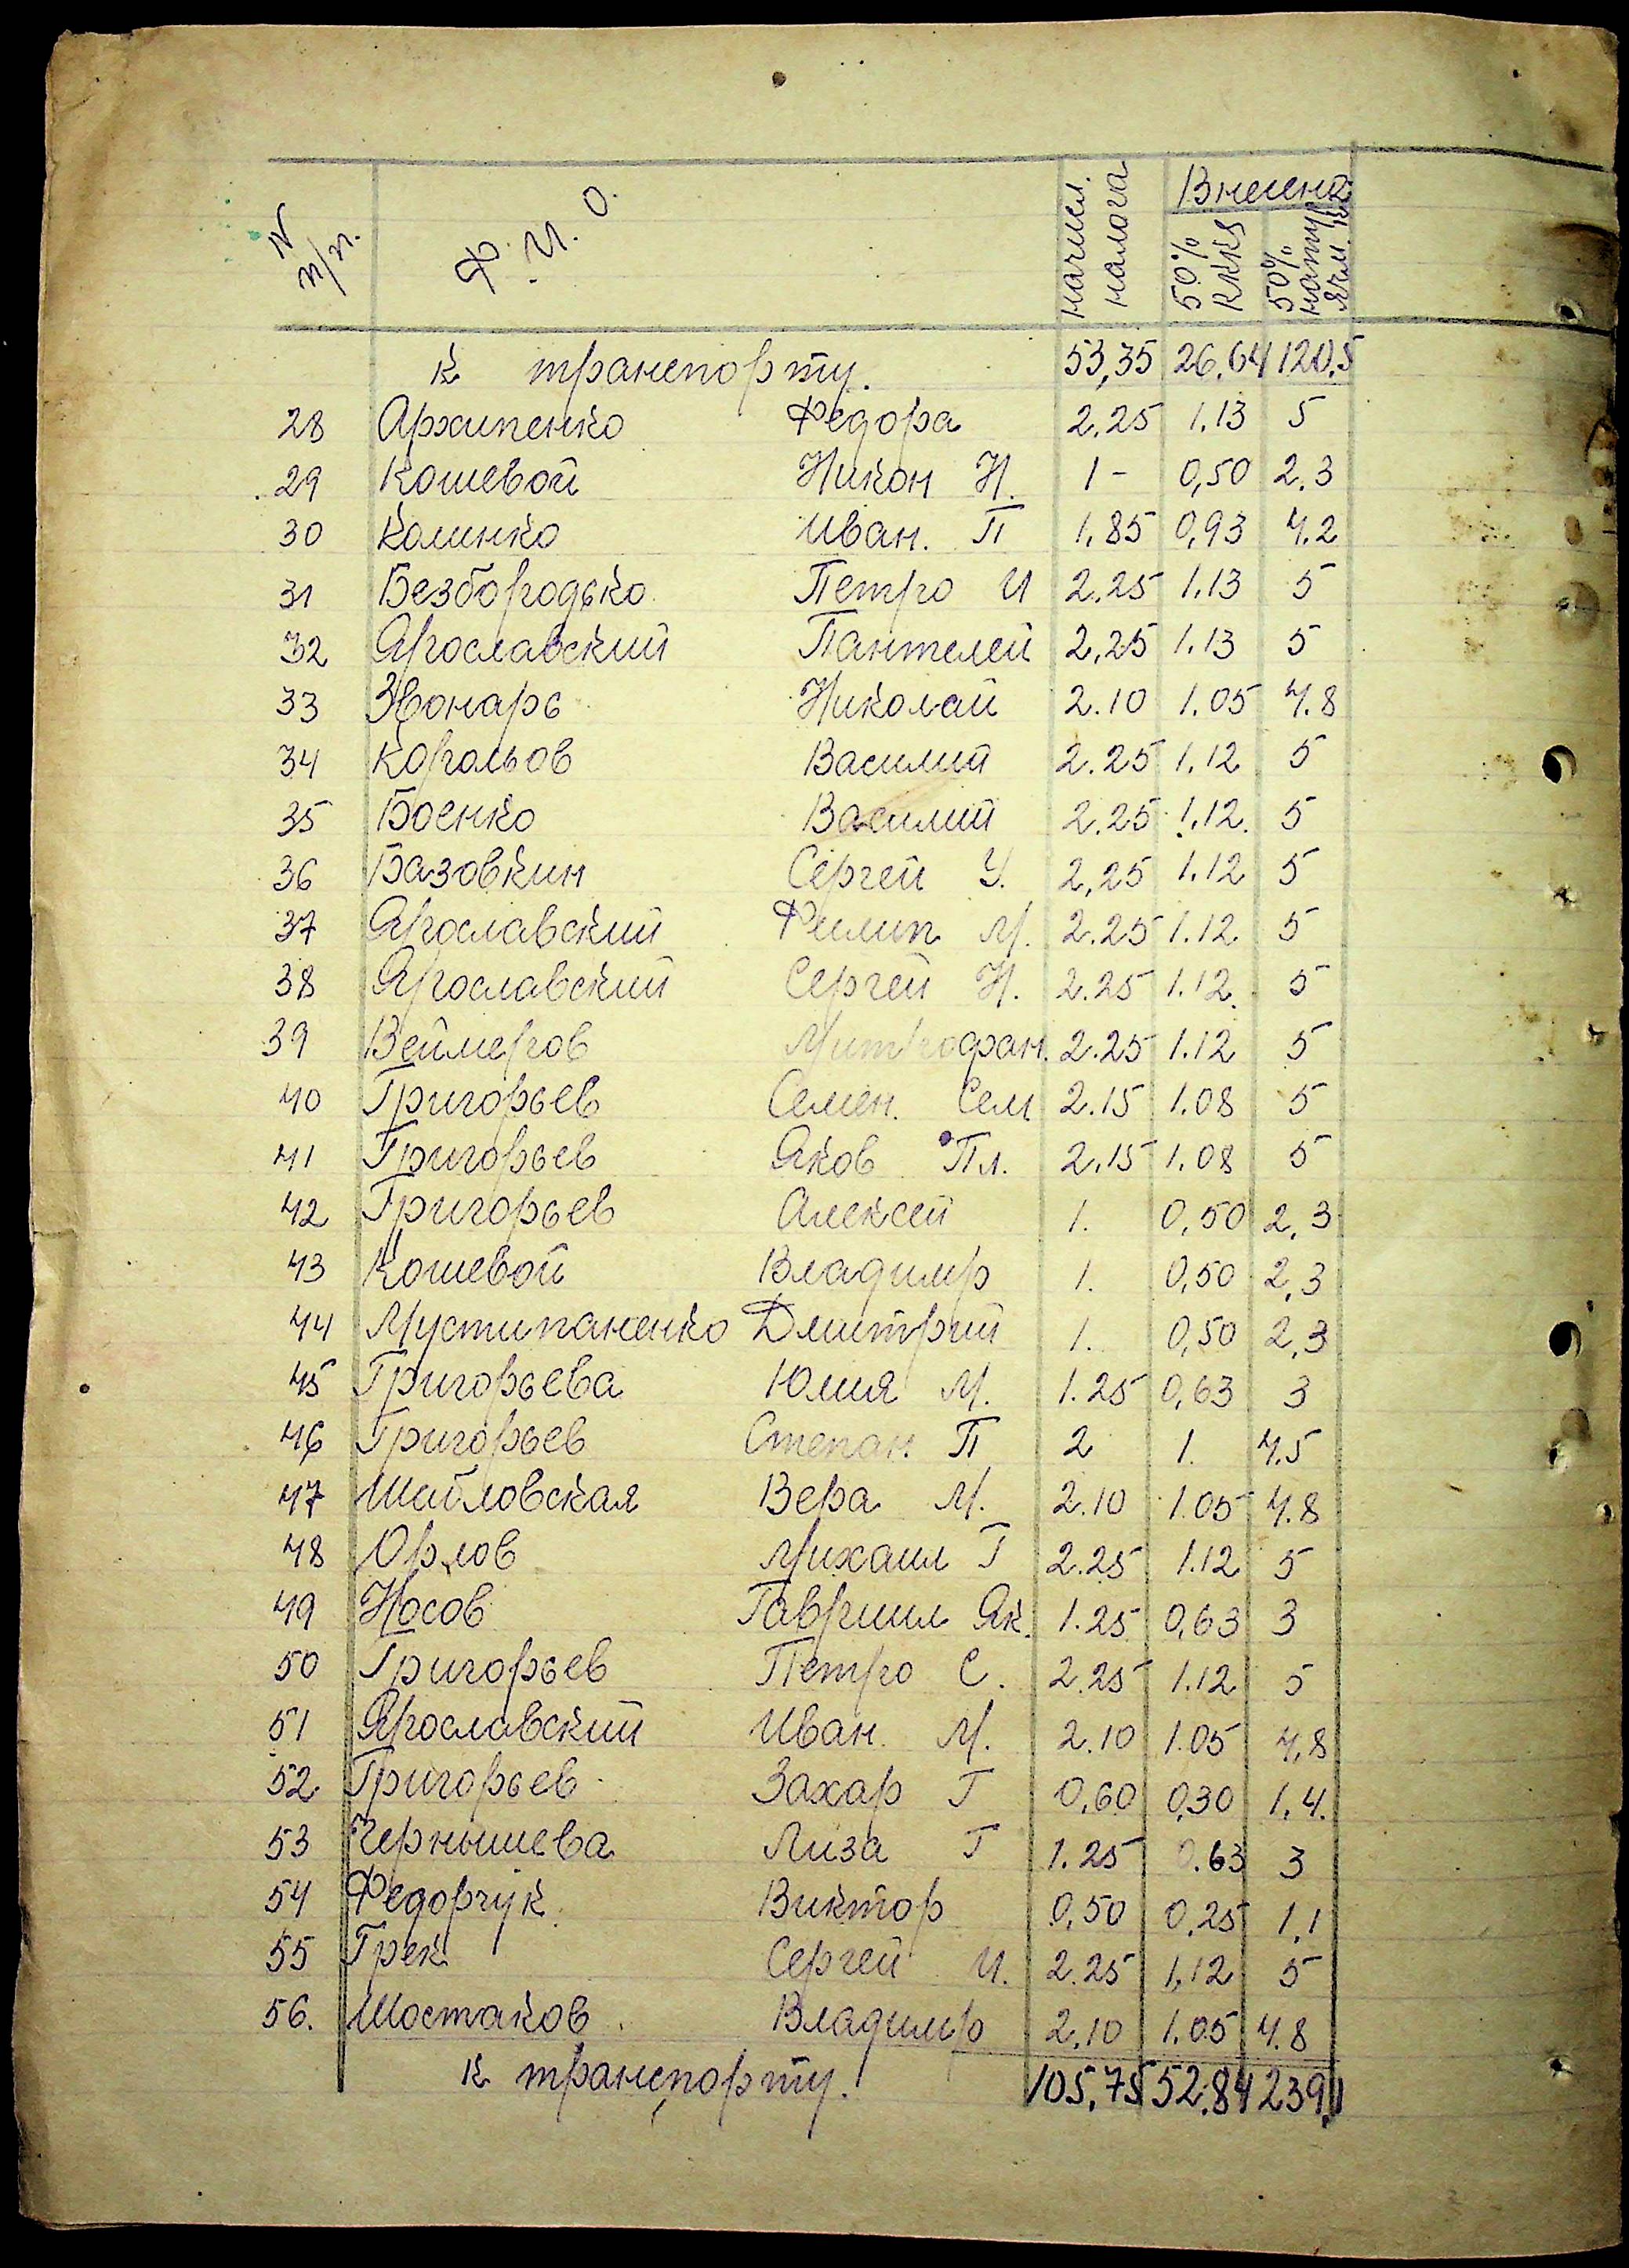 N п/п. Ф. И. О. начисл. налога Внесено
50% RKKS 50% натур. ячм. кг
к транспорту. 53,35 26,64 120,5
28 Архипенко Федора 2.25 1.13 5
29 Кошевой Никон Н. 1- 0,50 2.3
30 Калинко Иван. П 1.85 0,93 4.2
31 Безбородько Петро И 2.25 1.13 5
32 Ярославский Пантелей 2,25 1.13 5
33 Звонарь Николай 2.10 1.05 4.8
34 Корольов Василий 2.25 1.12 5
35 Боенко Василий 2.25 1.12. 5
36 Базовкин Сергей У. 2,25 1.12 5
37 Ярославский Филип М. 2.25 1.12. 5
38 Ярославский Сергей Н. 2.25 1.12. 5
39 Веймеров Митрофан. 2.25 1.12 5
40 Григорьев Семен. Сем 2.15 1.08 5
41 Григорьев Яков Пл. 2.15 1.08 5
42 Григорьев Алексей 1. 0,50 2,3
43 Кошевой Владимир 1. 0,50 2,3
44 Мустипаненко Дмитрий 1. 0,50 2,3
45 Григорьева Юлия М. 1.25 0,63 3
46 Григорьев Степан. П 2 1. 4.5
47 Шайловская Вера М. 2.10 1.05 4.8
48 Орлов Михаил Г 2.25 1.12 5
49 Носов Гавриил Як. 1.25 0,63 3
50 Григорьев Петро С. 2.25 1.12 5
51 Ярославский Иван. М. 2.10 1.05 4,8
52 Григорьев Захар Г 0,60 0,30 1,4.
53 Чернышева Лиза Г 1.25 0.63 3
54 Федорчук Виктор 0,50 0,25 1,1
55 Грек Сергей И. 2.25 1,12 5
56. Шостаков Владимир 2,10 1.05 4.8
к транспорту. 105,75 52.84 239,1